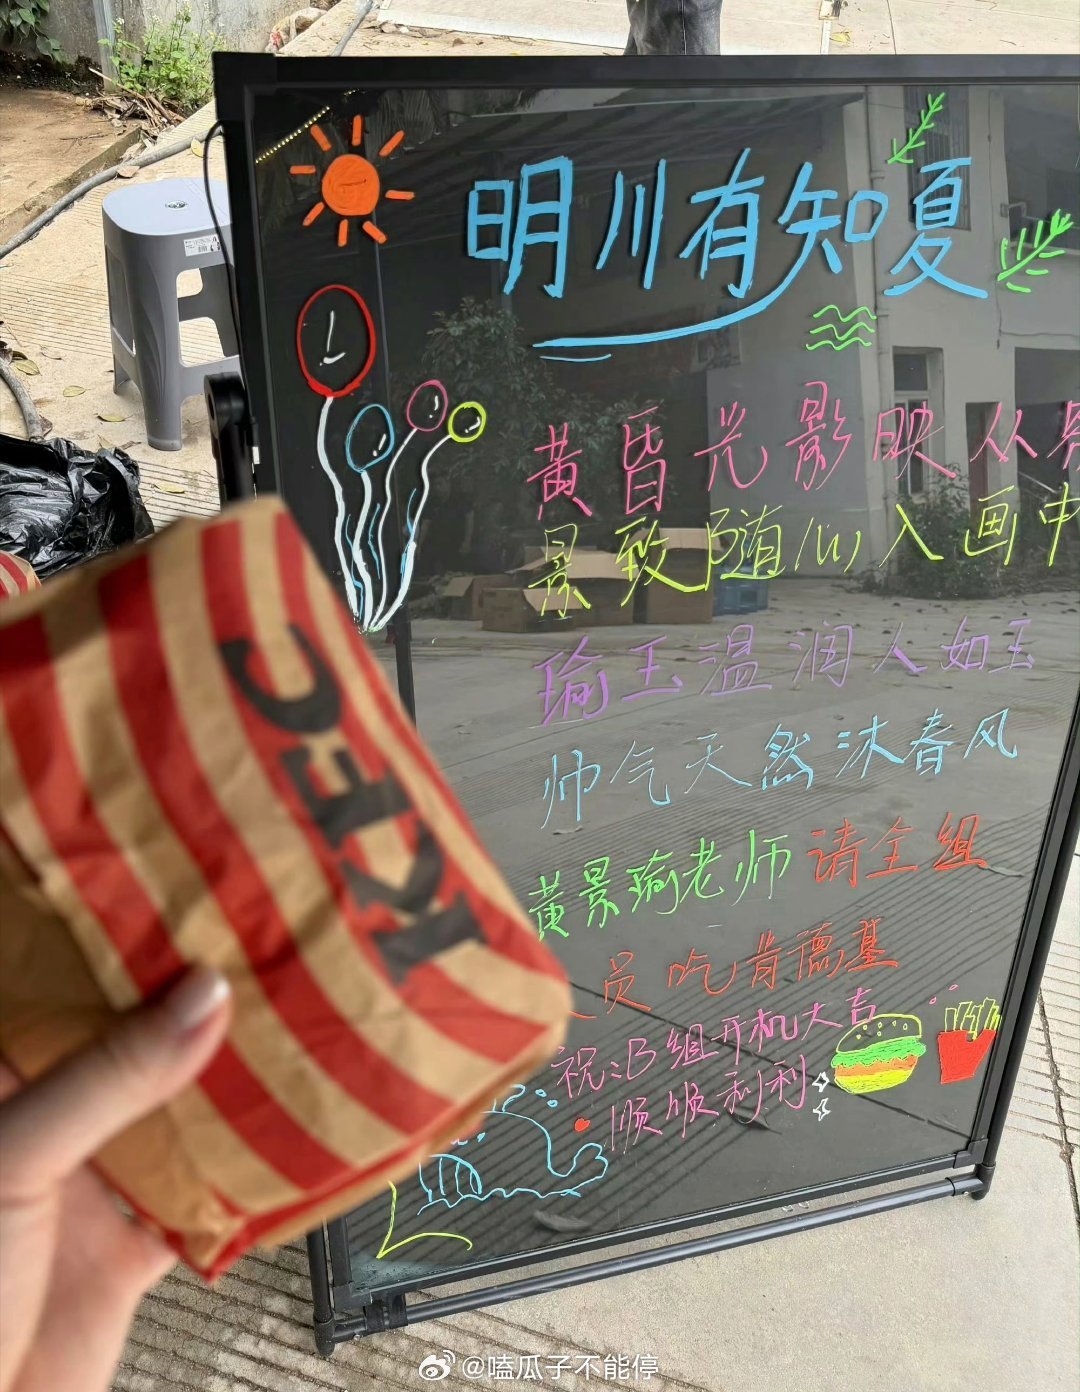 明川有知夏
黄昏光影映从
景致随心入画中
瑜玉温润人如玉
帅气天然沐春风
黄景瑜老师请全组
员吃肯德基
祝:B组开机大吉
顺顺利利
KFC
@嗑瓜子不能停